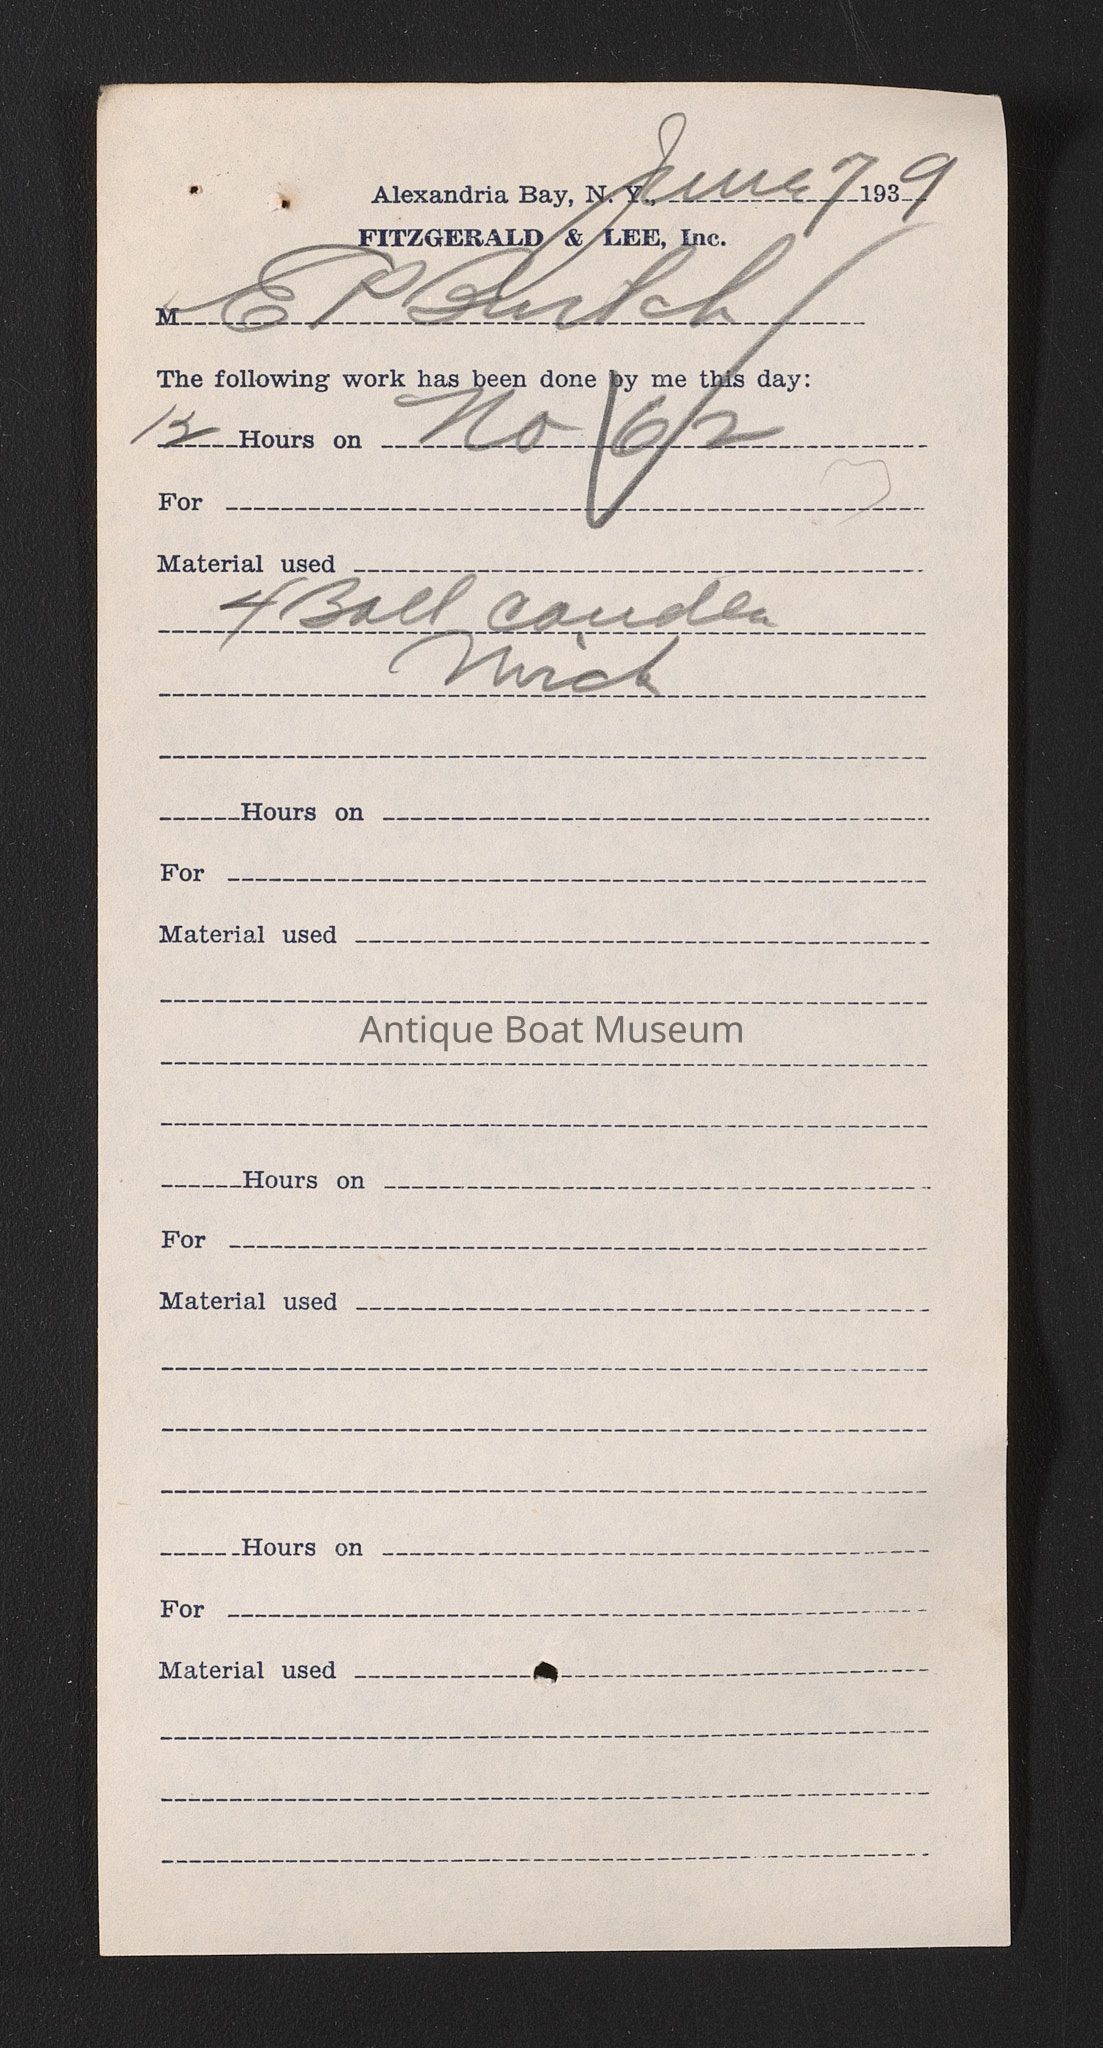 Alexandria Bay, N. Y., June 7 1939
FITZGERALD & LEE, Inc.
M E P Burtch
The following work has been done by me this day:
1/2 Hours on No 62
For
Material used
4 Ball candle
Wick
Hours on
For
Material used
Antique Boat Museum
Hours on
For
Material used
Hours on
For
Material used